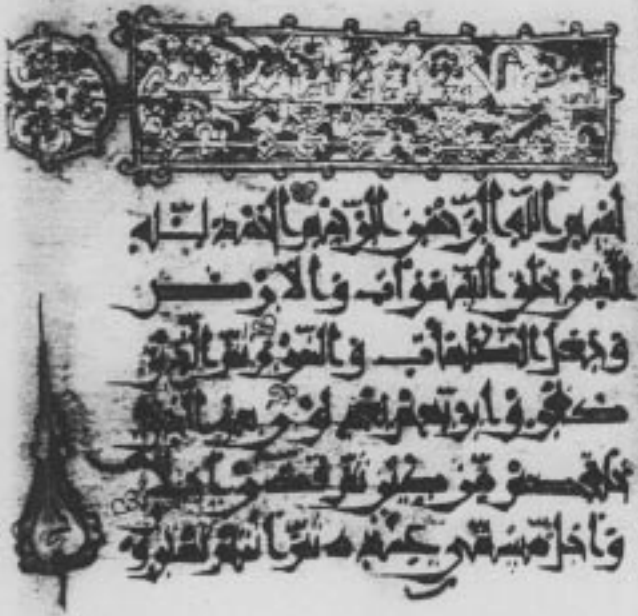 بسم الله الرحمن الرحيم الحمد لله
الذي خلق السموات والارض
وجعل الظلمات والنور ثم الذين
كفروا بربهم يعدلون هو الذي
خلقكم من طين ثم قضى اجلا
واجل مسمى عنده ثم انتم تمترون